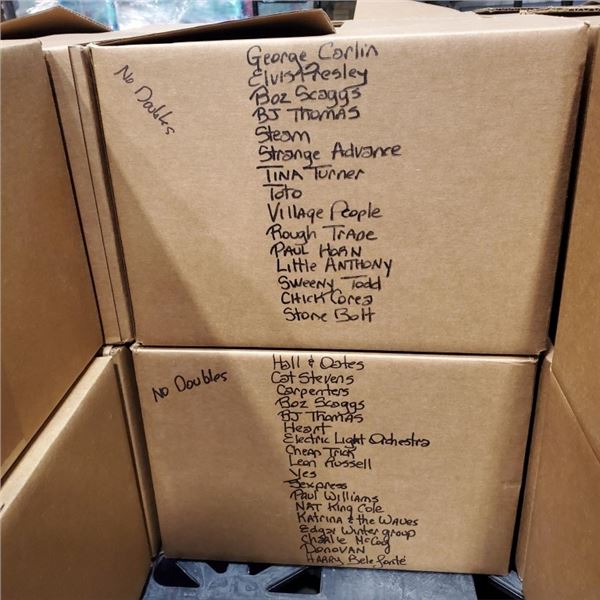 No Doubles
George Carlin
Elvis Presley
Boz Scaggs
BJ Thomas
Steam
Strange Advance
Tina Turner
Toto
Village People
Rough Trade
Paul Horn
Little Anthony
Sweeny Todd
Chick Corea
Stone Bolt
No Doubles
Hall & Oates
Cat Stevens
Carpenters
Boz Scaggs
BJ Thomas
Heart
Electric Light Orchestra
Cheap Trick
Leon Russell
Yes
Sexpress
Paul Williams
Nat King Cole
Katrina & the Waves
Edgar Winter group
Charlie McCoy
Donovan
Harry Belefonté